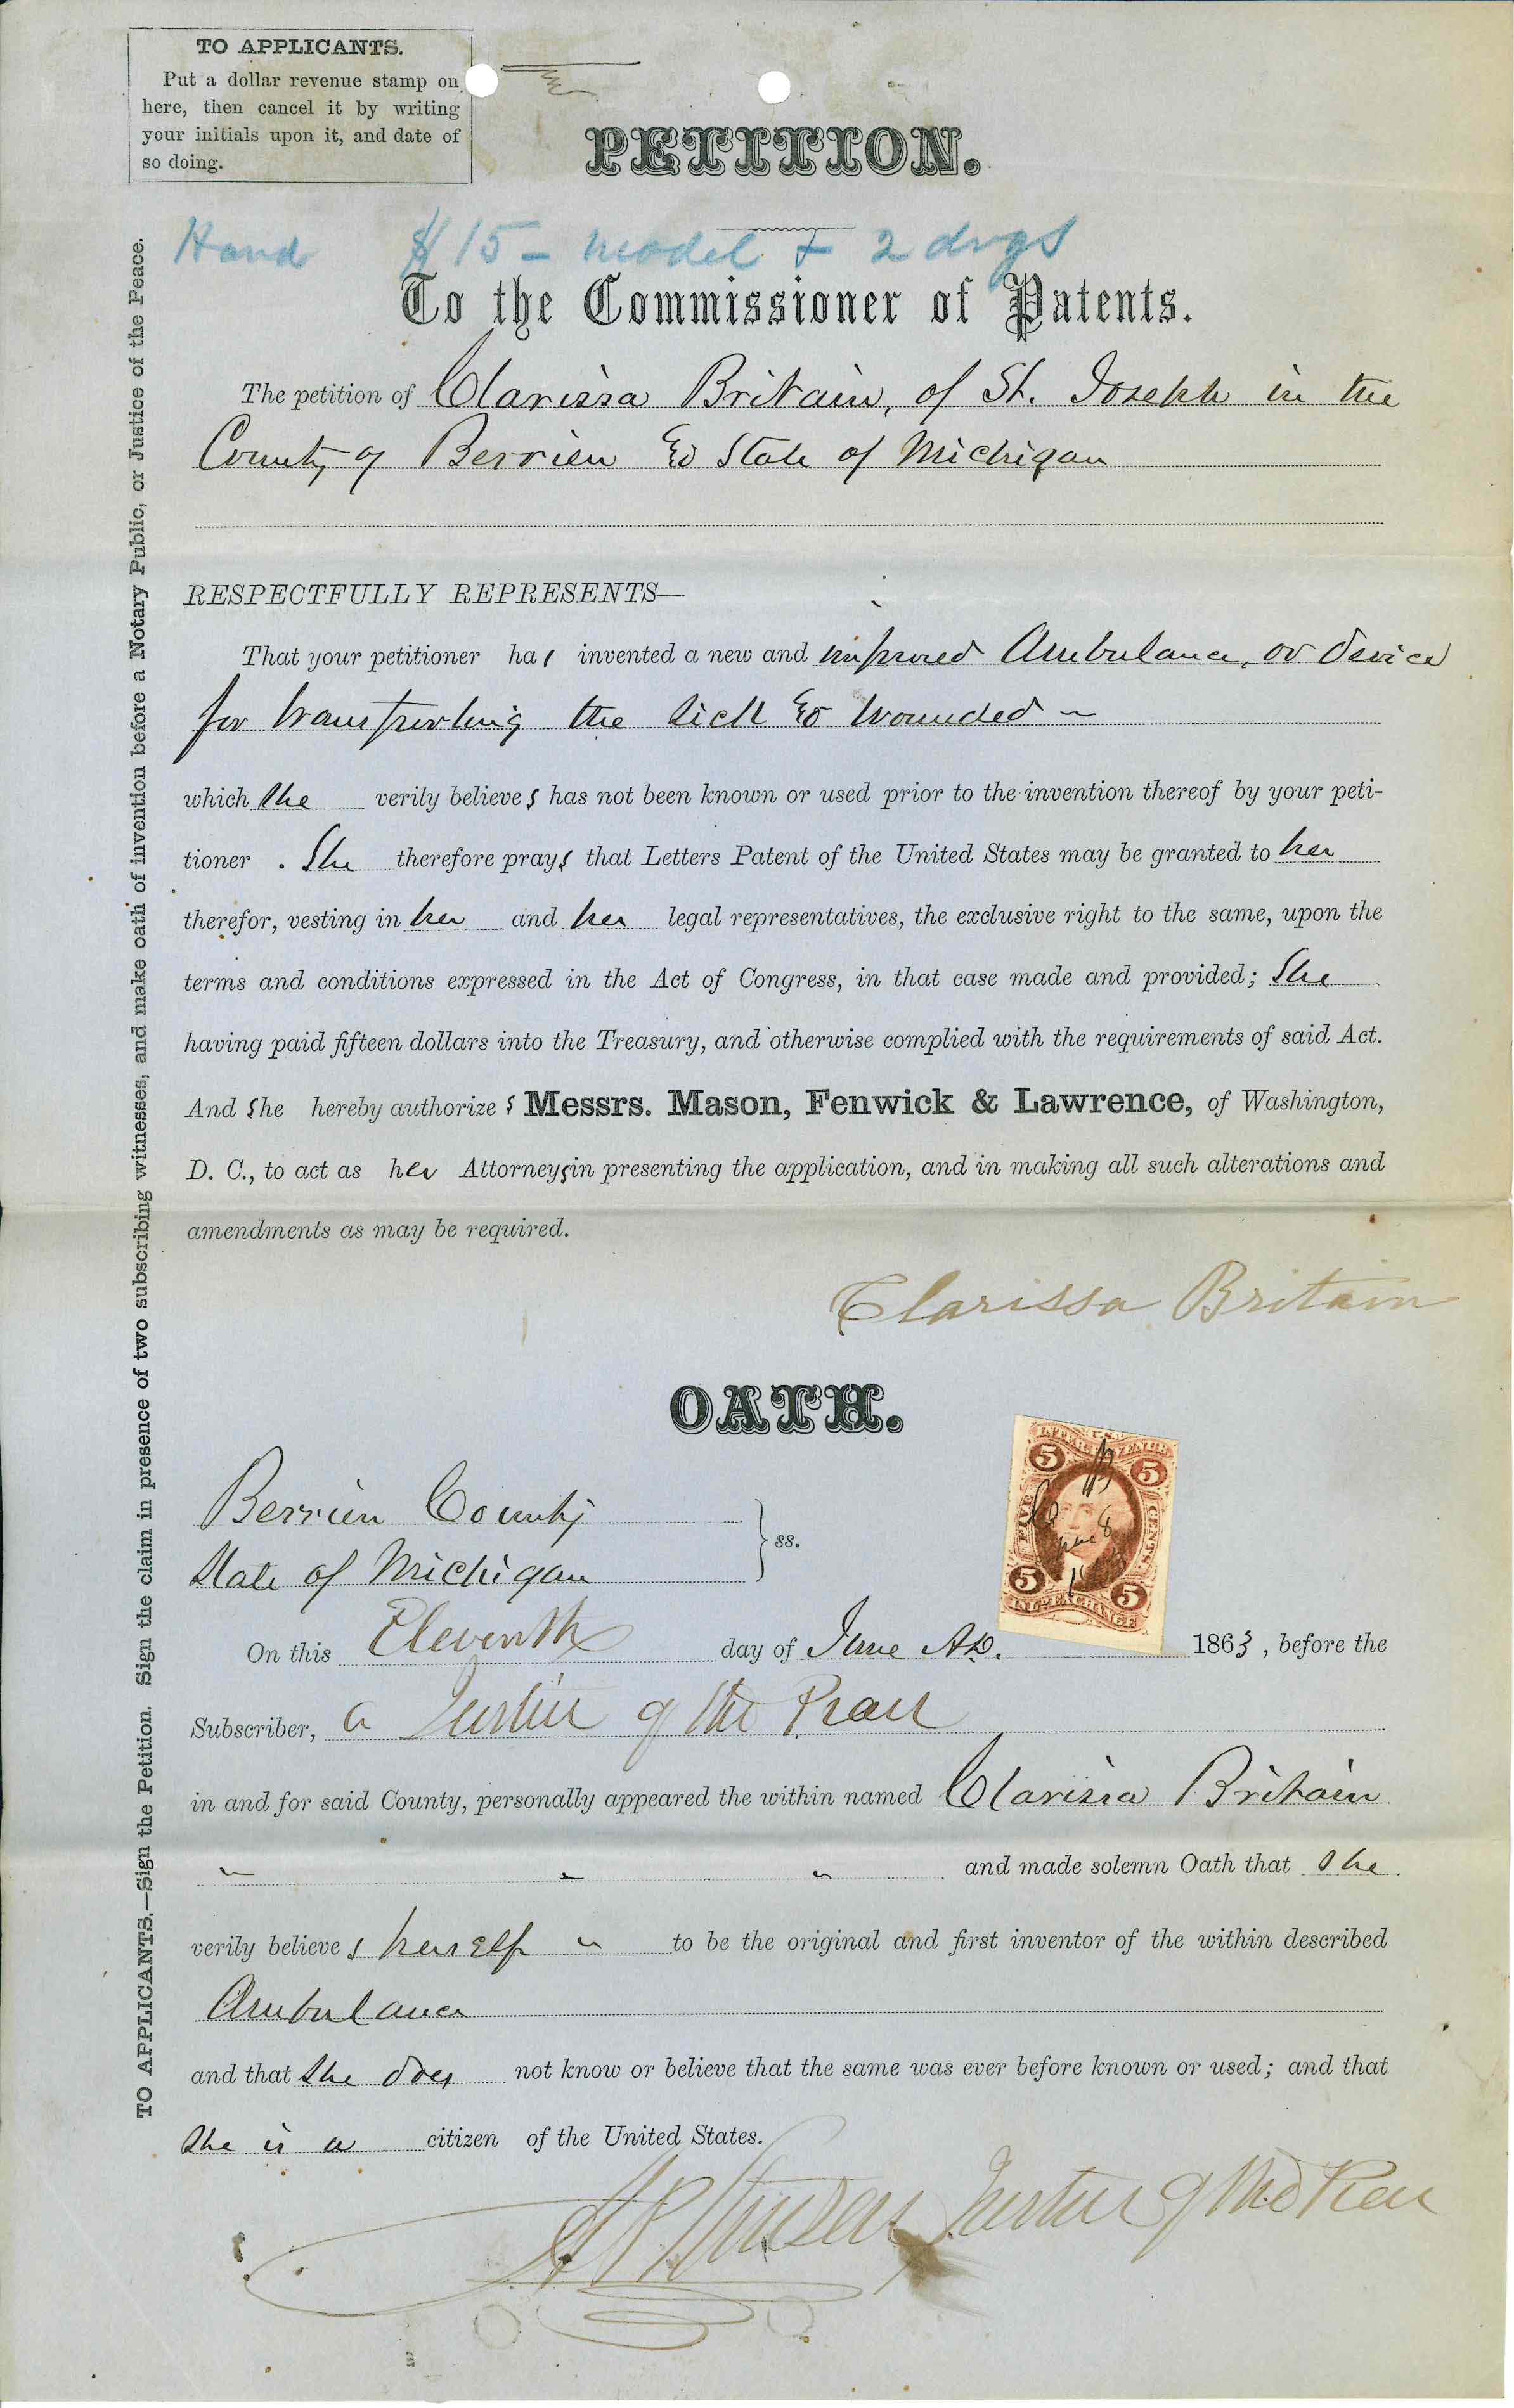 TO APPLICANTS.
Put a dollar revenue stamp on
here, then cancel it by writing
your initials upon it, and date of
so doing.
PETITION.
Hand $15 - model & 2 drgs
To the Commissioner of Patents.
The petition of Clarissa Britain, of St. Joseph in the
County of Berrien & State of Michigan
RESPECTFULLY REPRESENTS—
That your petitioner has invented a new and improved Ambulance, or device
for transporting the sick & wounded
which she verily believes has not been known or used prior to the invention thereof by your peti-
tioner . She therefore prays that Letters Patent of the United States may be granted to her
therefor, vesting in her and her legal representatives, the exclusive right to the same, upon the
terms and conditions expressed in the Act of Congress, in that case made and provided; She
having paid fifteen dollars into the Treasury, and otherwise complied with the requirements of said Act.
And she hereby authorizes Messrs. Mason, Fenwick & Lawrence, of Washington,
D. C., to act as her Attorneys in presenting the application, and in making all such alterations and
amendments as may be required.
Clarissa Britain
OATH.
U.S.
INTER. REVENUE
5 5
FIVE CENTS.
C B
June 8
5 5
INL. EXCHANGE
Berrien County
State of Michigan } ss.
On this Eleventh day of June A.D. 1863, before the
Subscriber, a Justice of the Peace
in and for said County, personally appeared the within named Clarissa Britain
and made solemn Oath that she
verily believes herself to be the original and first inventor of the within described
Ambulance
and that she does not know or believe that the same was ever before known or used; and that
she is a citizen of the United States.
Justice of the Peace
TO APPLICANTS.—Sign the Petition. Sign the claim in presence of two subscribing witnesses, and make oath of invention before a Notary Public, or Justice of the Peace.